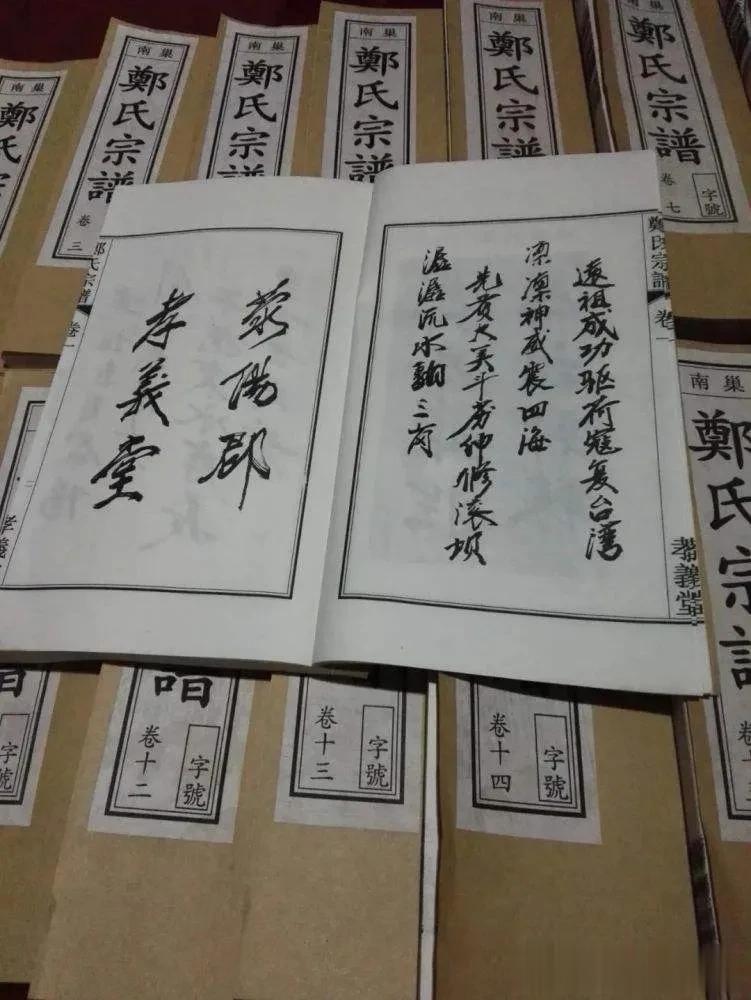 南巢
鄭氏宗
南巢
鄭氏宗譜
卷三
南巢
鄭氏宗譜
南巢
鄭氏宗譜
南巢
鄭氏宗譜
鄭氏宗譜
卷七
字號
鄭氏宗譜
卷一
孝義堂
遠祖成功驅荷寇复台灣
凛凛神威震四海
先大美斗房仲修滚坝
水三
荥陽郡
孝義堂
鄭氏宗譜
卷一
孝義
字號
卷十二
字號
卷十三
字號
卷十四
字號
南巢
鄭氏宗